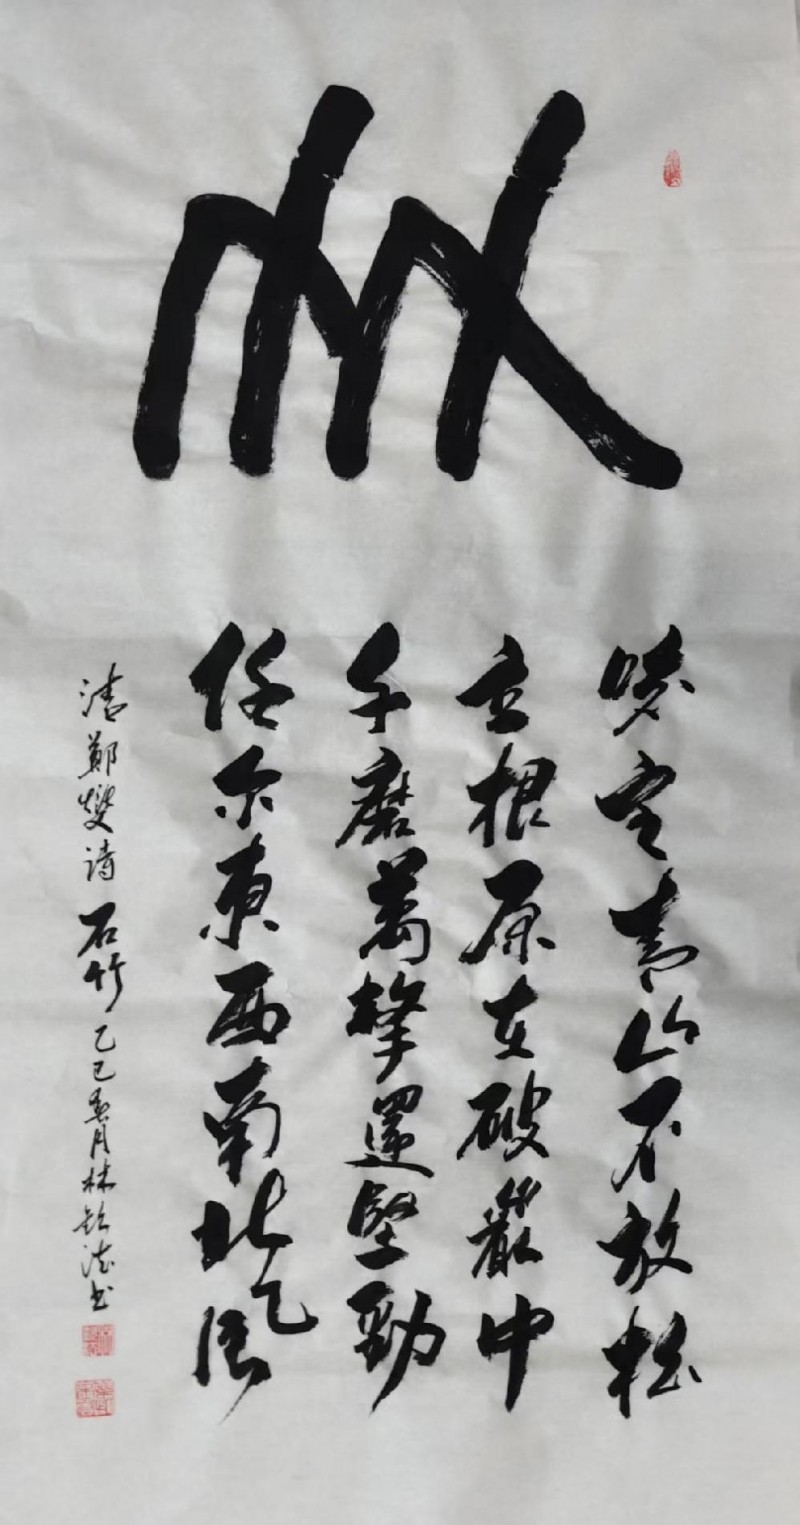 咬定青山不放松
立根原在破巖中
千磨萬擊還堅勁
任尔東西南北風
清鄭燮詩 石竹 乙巳春月林书